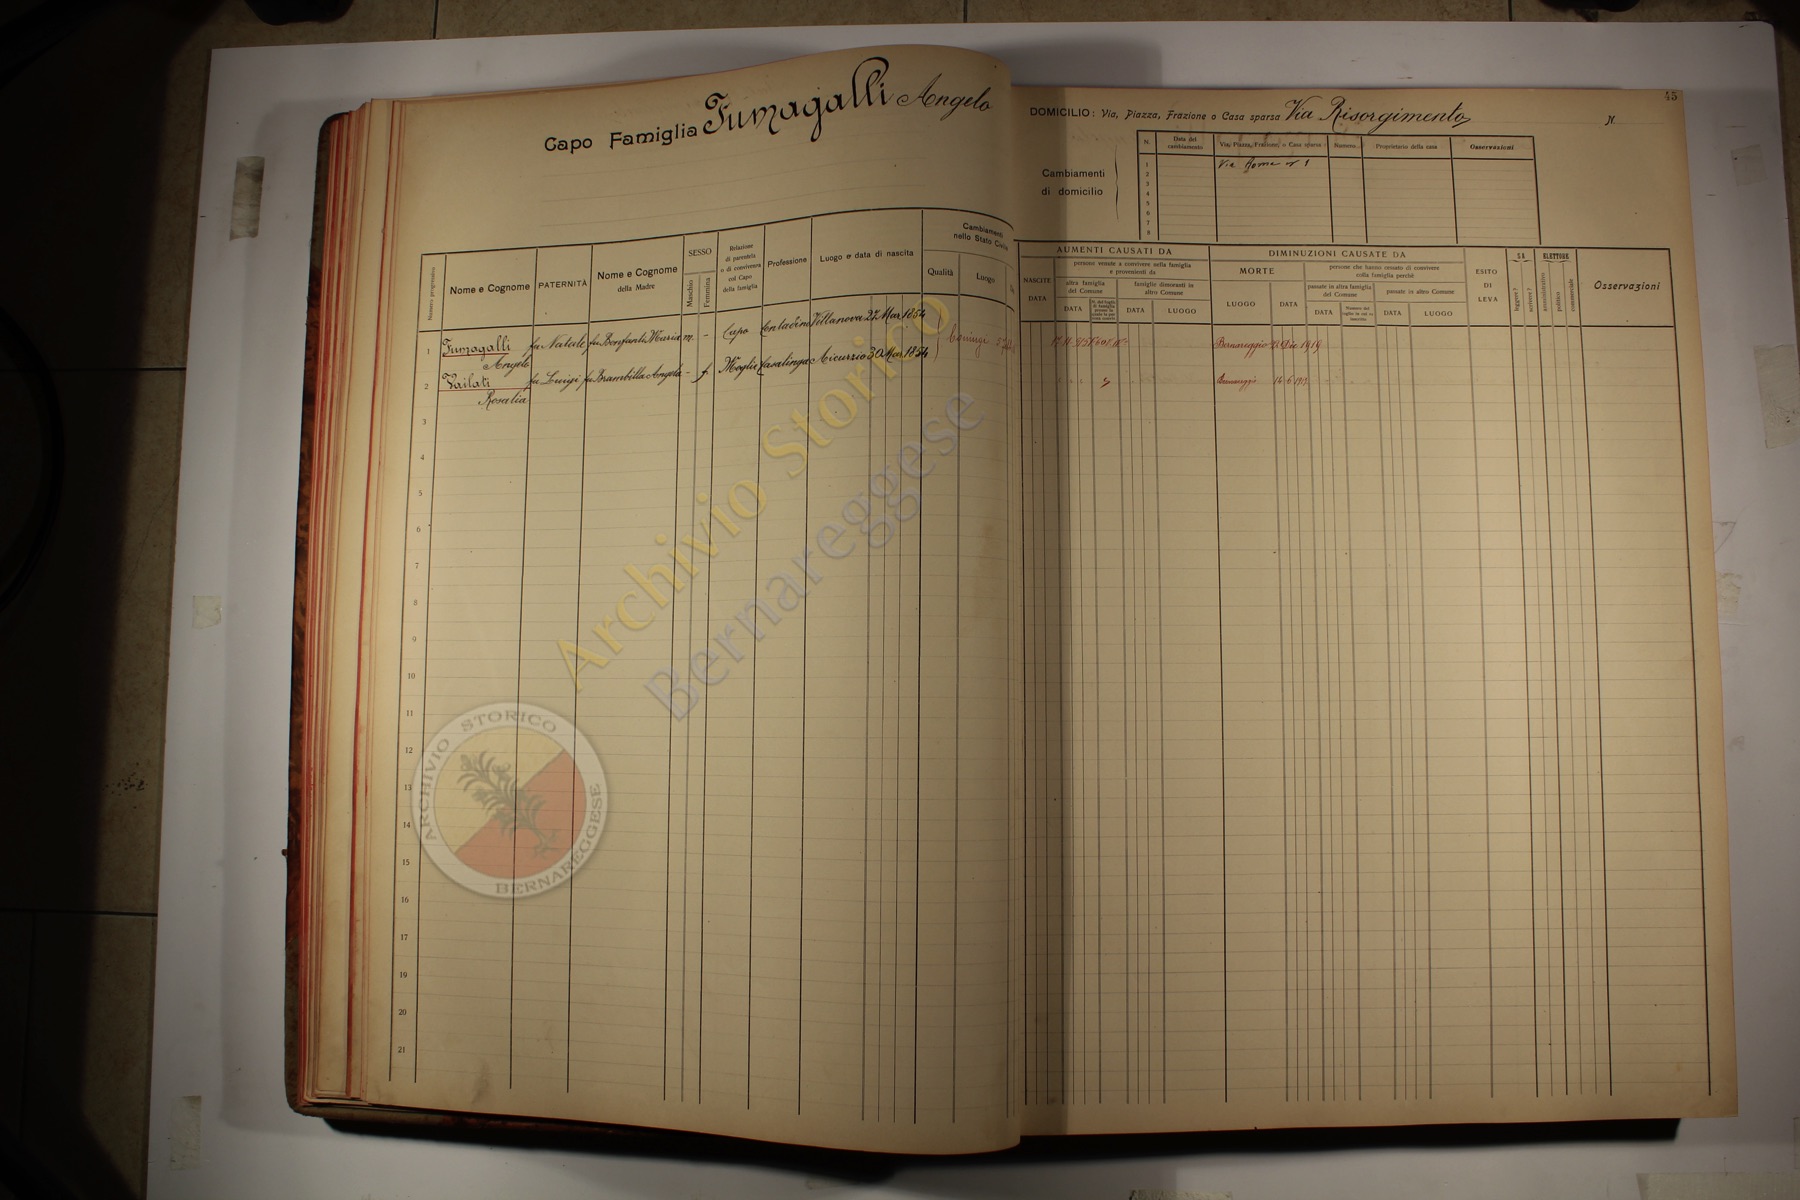 Capo Famiglia Fumagalli Angelo
45
DOMICILIO: Via, Piazza, Frazione o Casa sparsa Via Risorgimento N
Cambiamenti di domicilio
N. Data del cambiamento Via, Piazza, Frazione, o Casa sparsa Numero Proprietario della casa Osservazioni
1
2 Via Roma n° 1
3
4
5
6
7
8
Numero progressivo
Nome e Cognome
PATERNITÀ
Nome e Cognome della Madre
SESSO
Maschio
Femmina
Relazione di parentela o di convivenza col Capo della famiglia
Professione
Luogo e data di nascita
Cambiamenti nello Stato Civile
Qualità
Luogo
AUMENTI CAUSATI DA
NASCITE
DATA
persone venute a convivere nella famiglia e provenienti da
altra famiglia del Comune
DATA
famiglie dimoranti in altro Comune
DATA LUOGO
DIMINUZIONI CAUSATE DA
MORTE
LUOGO DATA
persone che hanno cessato di convivere colla famiglia perchè
passate in altra famiglia del Comune
DATA
passate in altro Comune
DATA LUOGO
ESITO DI LEVA
SA
leggere?
scrivere?
ELETTORE
amministrativo
politico
commerciale
Osservazioni
1 Fumagalli Angelo fu Natale fu Bonfanti Maria m. - Capo Contadino Villanova 27 Mar. 1854 Coniugi
Bernareggio Dic 1919
2 Vailati Rosalia fu Luigi fu Brambilla Angela - f. Moglie Casalinga Aicurzio 30 Mar. 1854
Bernareggio
3
4
5
6
7
8
9
10
11
12
13
14
15
16
17
18
19
20
21
Archivio Storico
Bernareggese
ARCHIVIO STORICO BERNAREGGESE